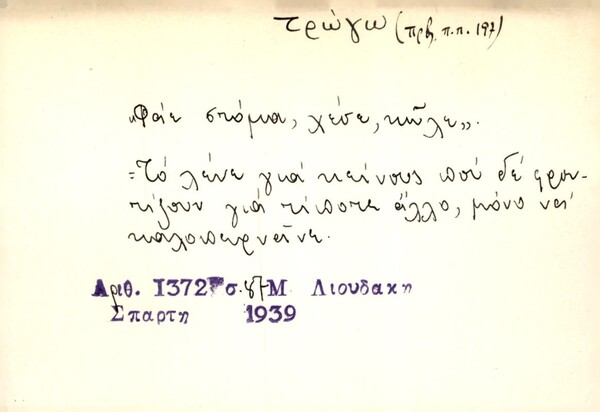 τρώγω (πρβ. π.π. 197)
«Φάε στόμα, χέσε, κῶλε».
=Τό λένε γιά κείνους πού δέ φρον-
τίζουν γιά τίποτε ἄλλο, μόνο νά
καλοπερνᾶνε.
Αριθ. 1372 σ. 87 Μ Λιουδακη
Σπαρτη 1939